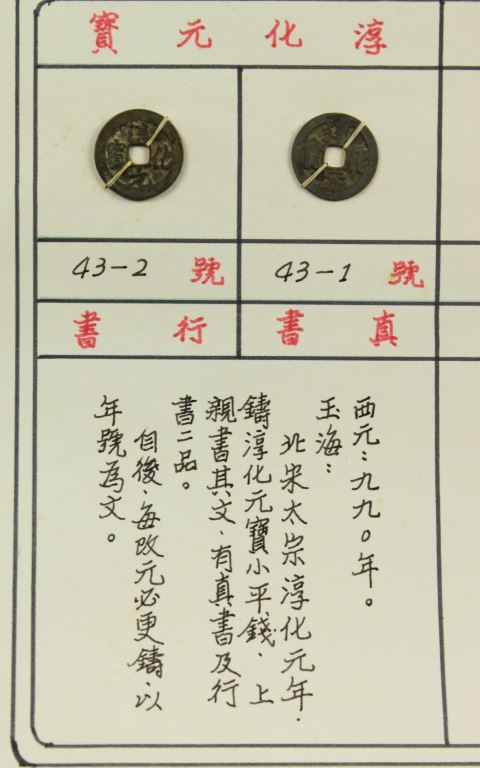 淳化元寶
43-1 號
43-2 號
真書
行書
西元：九九〇年。
玉海：
北宋太宗淳化元年．
鑄淳化元寶小平錢．上
親書其文、有真書及行
書二品。
自後、每改元必更鑄、以
年號為文。